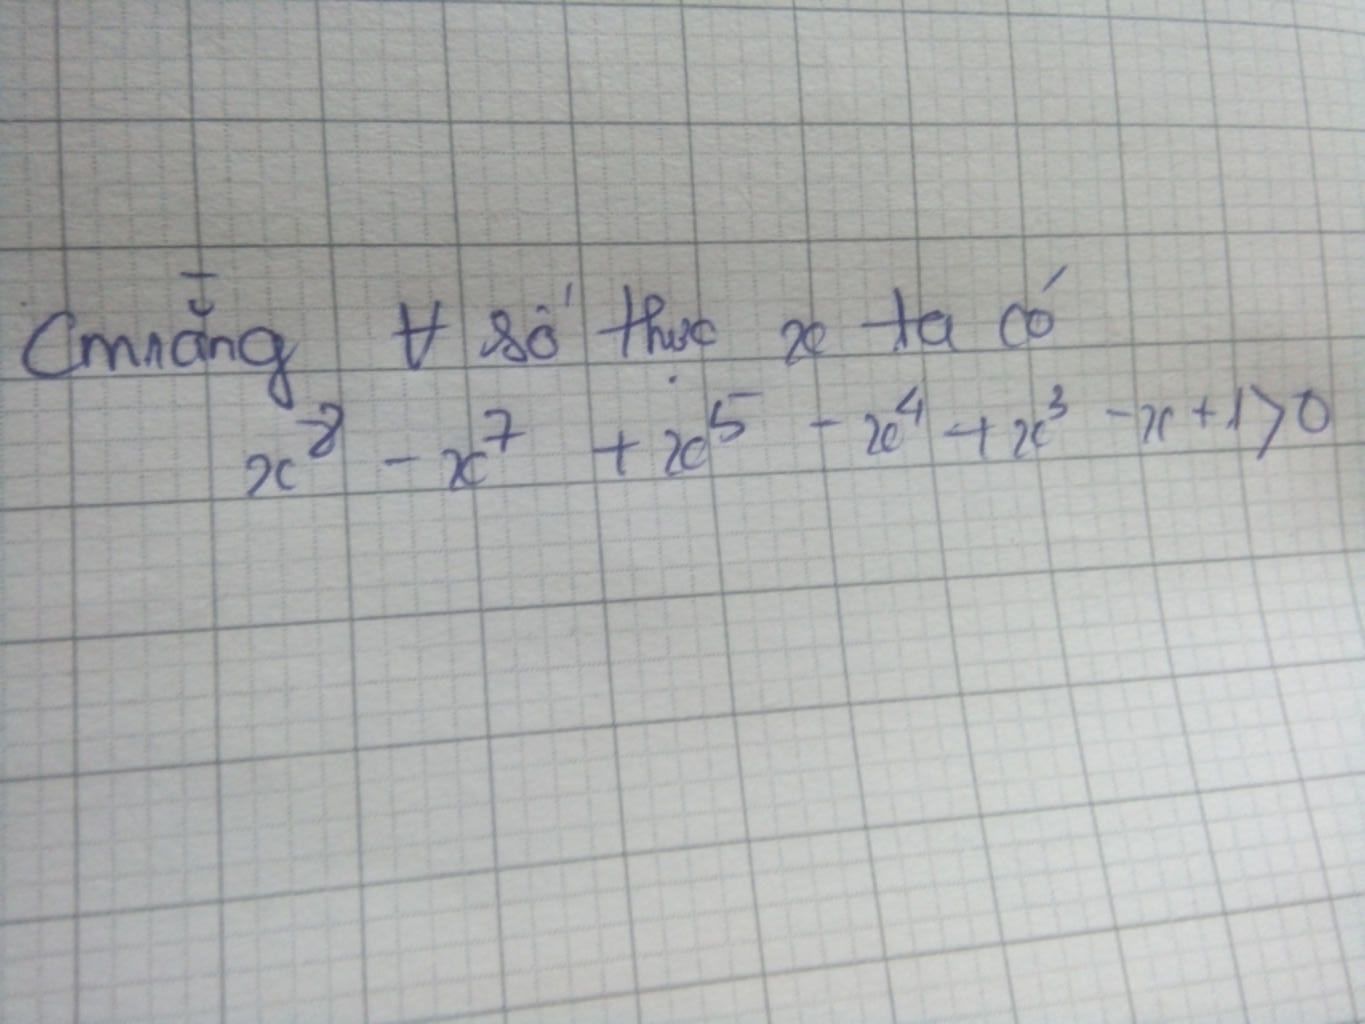 Cm rằng ∀ số thực x ta có
x⁸ - x⁷ + x⁵ - x⁴ + x³ - x + 1 > 0